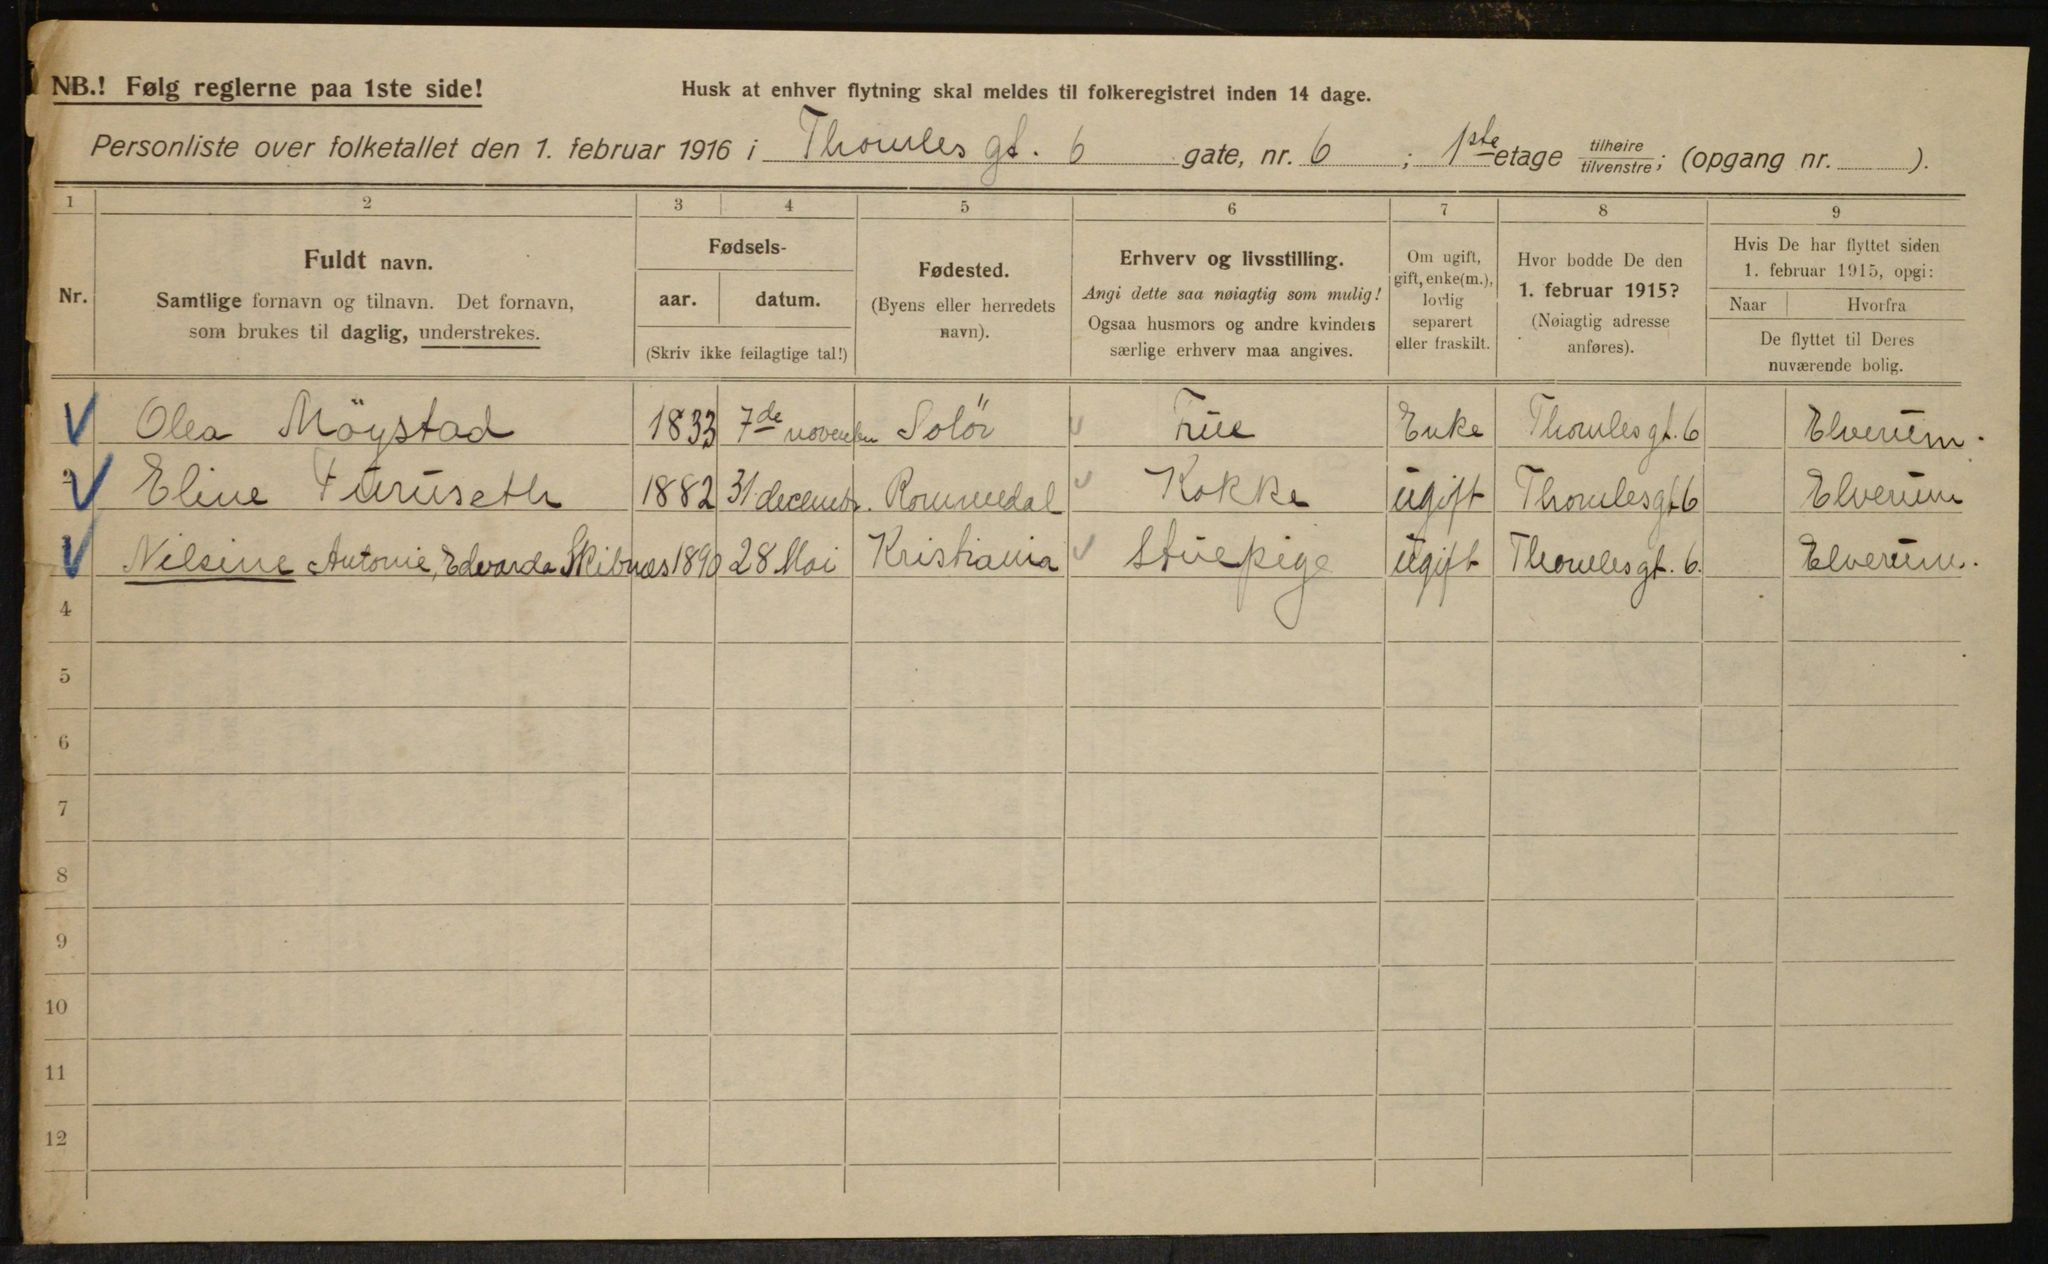 NB.! Følg reglerne paa 1ste side!
Husk at enhver flytning skal meldes til folkeregistret inden 14 dage.
Personliste over folketallet den 1. februar 1916 i Thomles gt. 6 gate, nr. 6; 1ste etage tilhøire/tilvenstre; (opgang nr. ).
1 2 3 4 5 6 7 8 9
Nr.
Fuldt navn.
Samtlige fornavn og tilnavn. Det fornavn,
som brukes til daglig, understrekes.
Fødsels-
aar. datum.
(Skriv ikke feilagtige tal!)
Fødested.
(Byens eller herredets
navn).
Erhverv og livsstilling.
Angi dette saa nøiagtig som mulig!
Ogsaa husmors og andre kvinders
særlige erhverv maa angives.
Om ugift,
gift, enke(m.),
lovlig
separert
eller fraskilt.
Hvor bodde De den
1. februar 1915?
(Nøiagtig adresse
anføres).
Hvis De har flyttet siden
1. februar 1915, opgi:
Naar Hvorfra
De flyttet til Deres
nuværende bolig.
Olea Möystad 1833 7de november Solör Frue Enke Thomlesgt. 6 Elverum.
2 Eline Furuseth 1882 31 decembr. Rommedal Kokke ugift Thomlesgt 6 Elverum
Nilsine Antonie, Edvarda Skibnæs 1890 28 Mai Kristiania Stuepige ugift Thomlesgt. 6. Elverum.
4
5
6
7
8
9
10
11
12